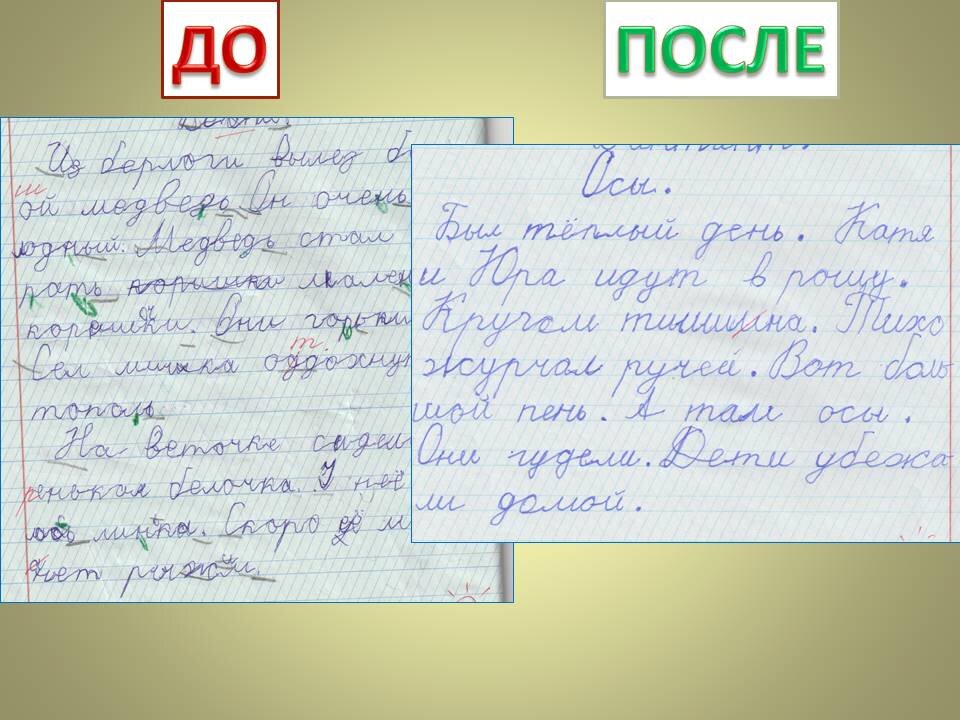 ДО
ПОСЛЕ
Из берлоги вылез
ой медведь. Он очень
лодный. Медведь стал
коришки. Они горьки
Сел мишка оддохну
тополь.
На веточке сидел
ренькая белочка. У неё
линка. Скоро её
неет рыжей.
Осы.
Был тёплый день. Катя
и Юра идут в рощу.
Кругом тишишна. Тихо
журчал ручей. Вот боль
шой пень. А там осы.
Они гудели. Дети убежа
ли домой.